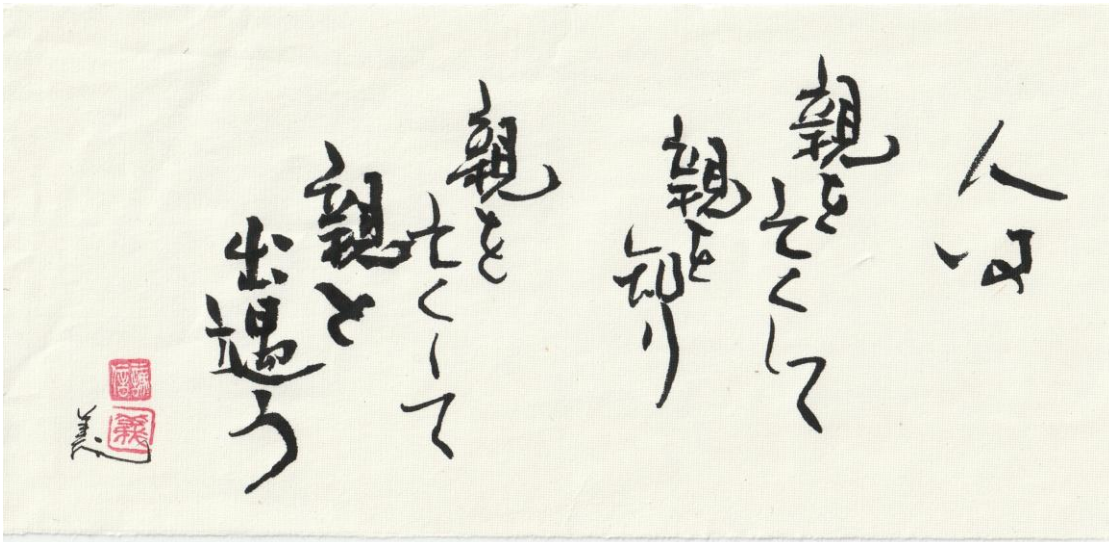 人は
親を亡くして
親を知り
親を
亡くして
親と
出遇う
義